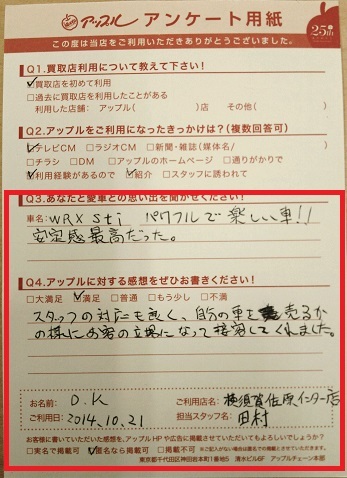 アップル アンケート用紙
25th
この度は当店をご利用いただきありがとうございました。
Q1.買取店利用について教えて下さい!
☑買取店を初めて利用
□過去に買取店を利用したことがある
利用した店舗: アップル( )店 その他( )
Q2.アップルをご利用になったきっかけは?(複数回答可)
☑テレビCM □ラジオCM □新聞・雑誌(媒体名/ )
□チラシ □DM □アップルのホームページ □通りがかりで
☑利用経験があるので ☑紹介 □スタッフに誘われて
Q3.あなたと愛車との思い出を聞かせください!
車名: WRX Sti パワフルで楽しい車!!
安定感最高だった。
Q4.アップルに対する感想をぜひお書きください!
□大満足 ☑満足 □普通 □もう少し □不満
スタッフの対応も良く、自分の車を売るか
の様にお客の立場になって接客してくれました。
お名前: D.K ご利用店名: 横須賀佐原インター店
ご利用日: 2014.10.21 担当スタッフ名: 田村
お客様に書いていただいた感想を、アップルHPや広告に掲載させていただいてもよろしいでしょうか?
□実名で掲載可 ☑匿名なら掲載可 □掲載不可 ※ご記入がない場合は匿名での掲載とさせていただきます。
東京都千代田区神田佐久間町1番地5 清水ビル6F アップルチェーン本部